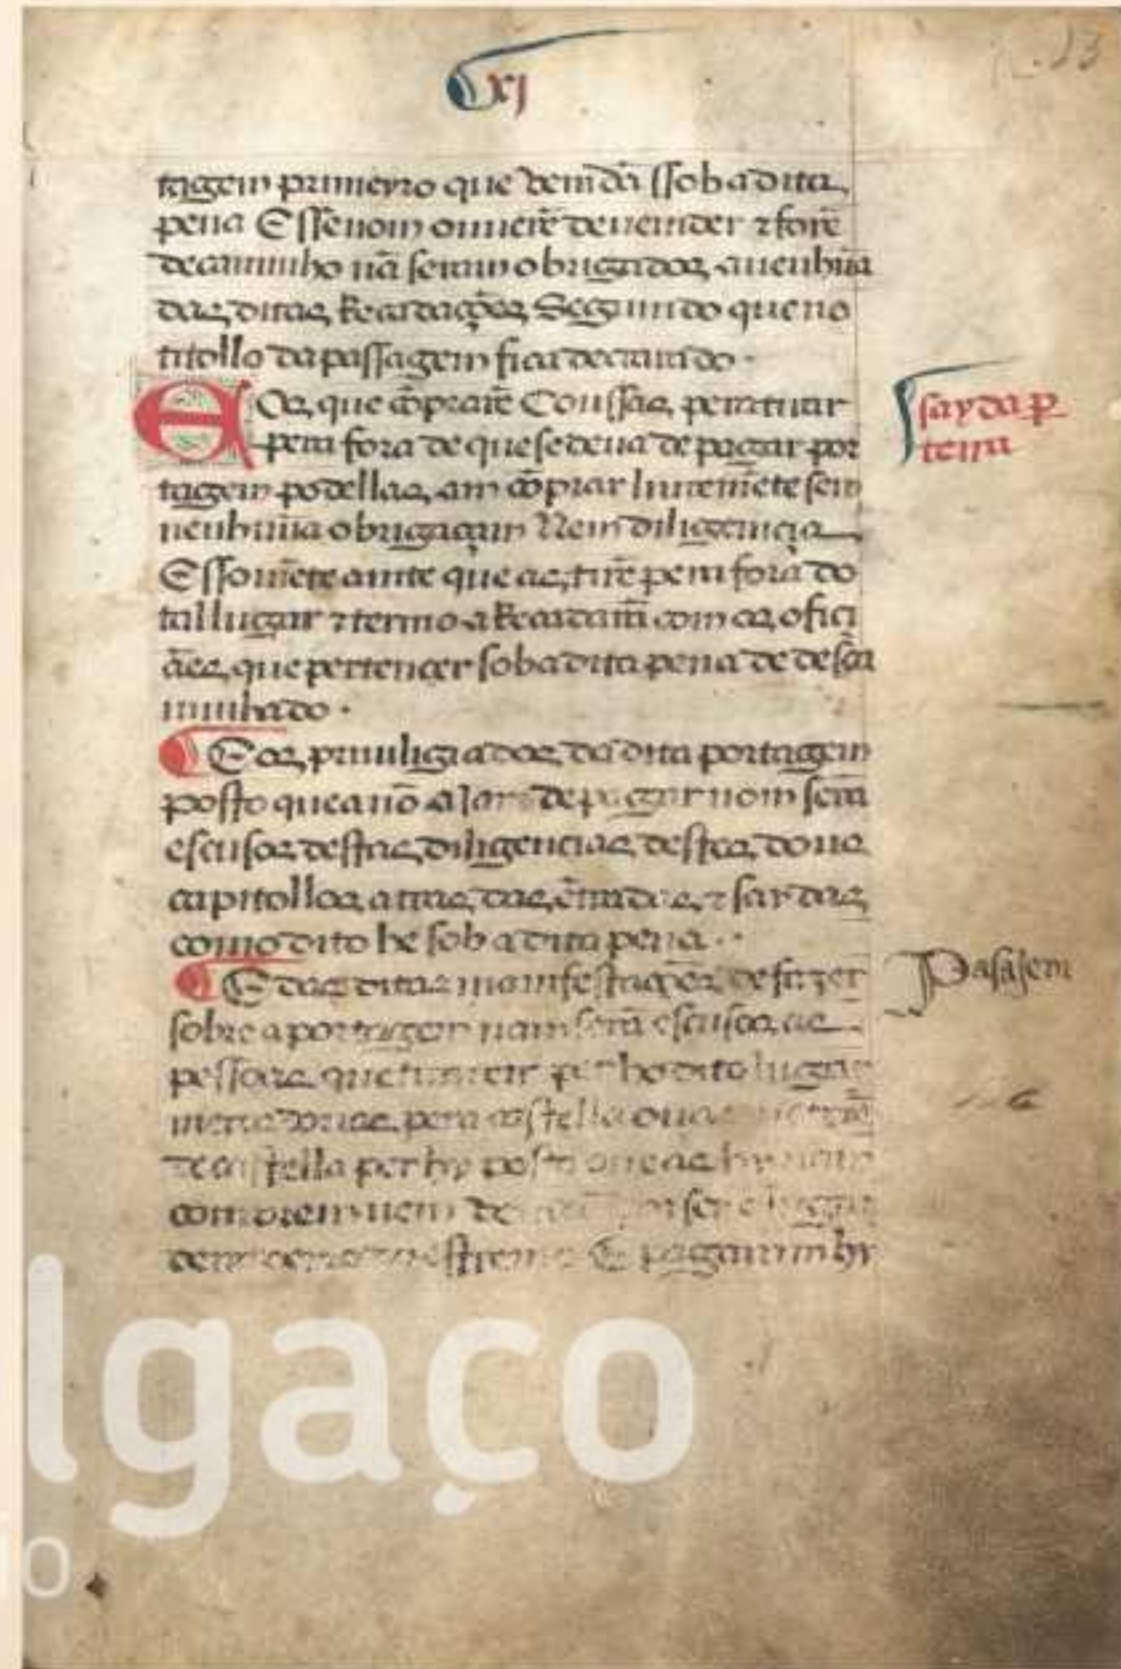 xj
13
tagem primeyro que vemdã ssob a dita
pena E sse nom ouuerẽ de uemder ⁊ forẽ
de caminho nã seram obrigados a nenhũa
das ditas Recadações Segumdo que no
titollo da passagem fica decrarado ·
E Os que cõprarẽ Coussas pera tirar
pera fora de que se deua de pagar por
tagem podellas am cõprar liuremẽte sem
nenhuũa obrigaçam Nem diligemcia
E ssomẽte amte que as tirẽ pera fora do
tal lugar ⁊ termo a Recadarã com os ofici
ães que pertencer sob a dita pena de desca
minhado ·
E os priuiligiados da dita portagem
posto que a nõ ajam de pagar nom serã
escusos destas diligencias destes dous
capitollos atras das ẽtradas ⁊ saydas
como dito he sob a dita pena · ·
E das ditas manifestações de fazer
sobre a portagem nam serã escusos as
pessoas que tirarem per ho dito lugar
mercadorias pera castella ou as
de castella per hy posto que as hy nam
comprem nem
E pagaram hy
sayda p̱
terra
Pasajem
lgaço
o